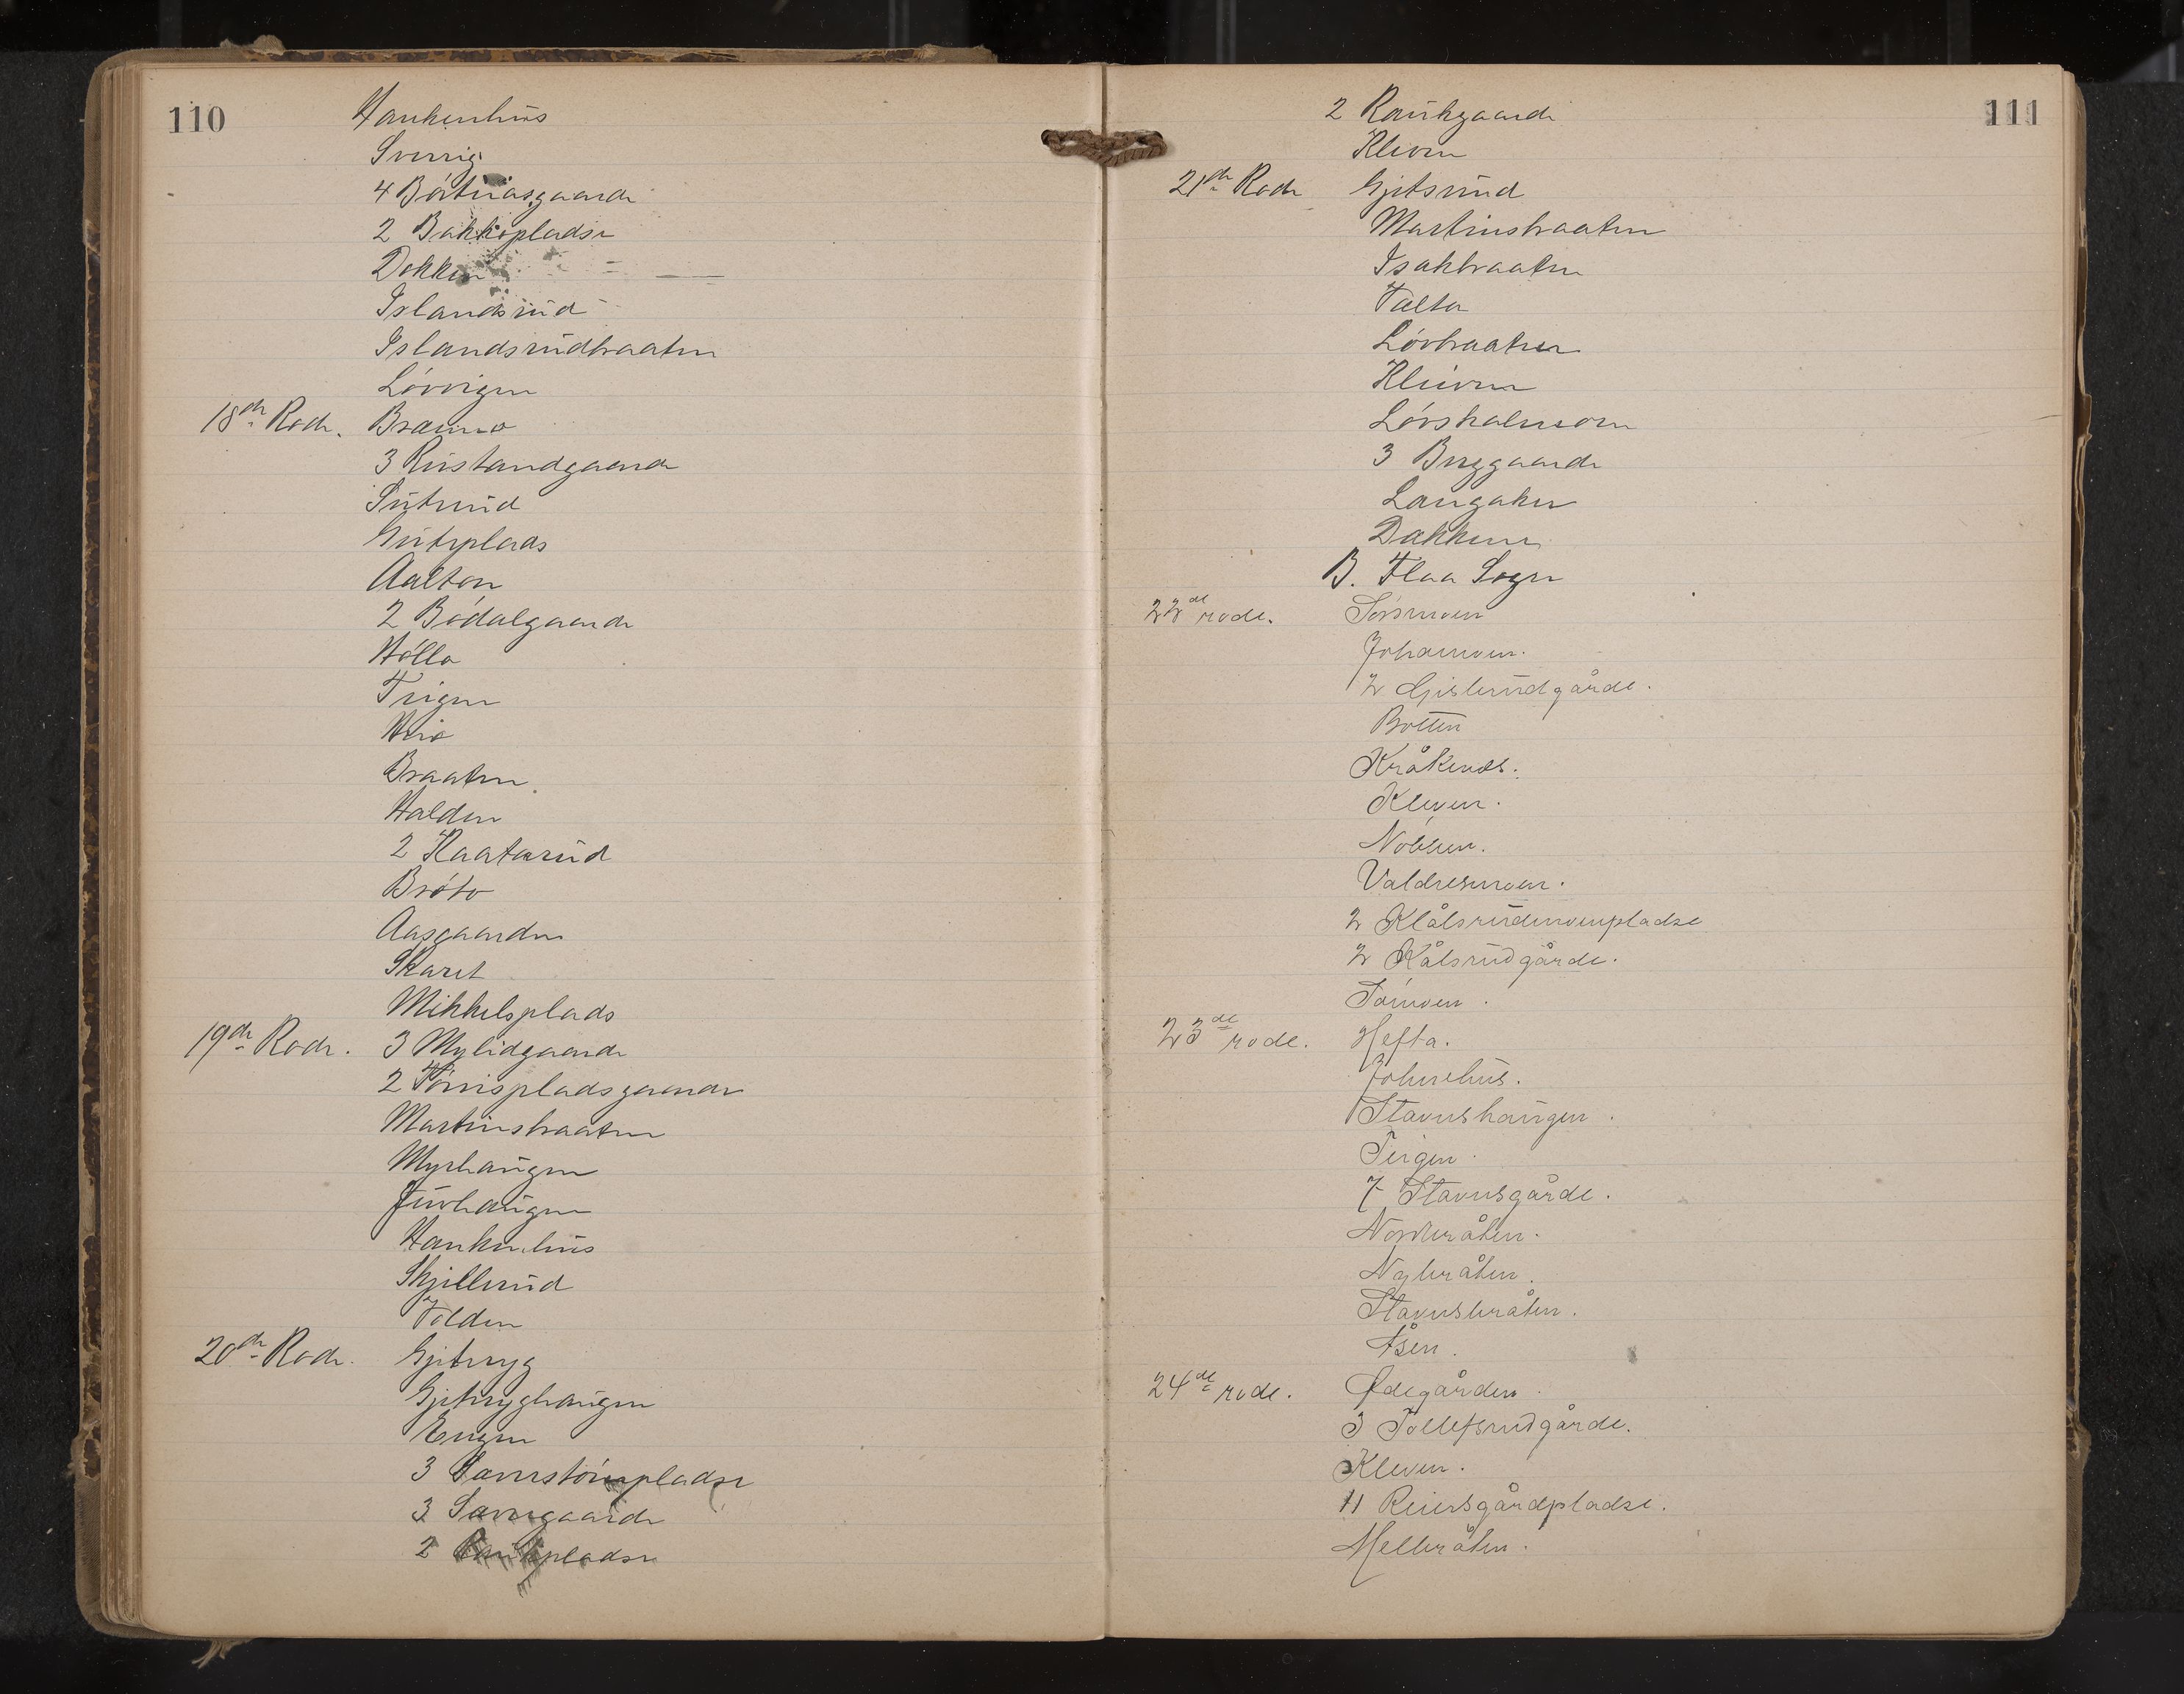 110
Haukenhus
Sverrig
4 Børtnæsgaarde
2 Bakkepladse
Dokken
Islandsrud
Islandsrudbraaten
Løvvigen
18de Rode. Bramo
3 Rustandgaarde
Sutrud
Gutuplads
Aalton
2 Bødalgaarde
Hølla
Teigen
Braaten
Halden
2 Kaatarud
Brøto
Aasgaarden
Skaret
Mikkelsplads
19de Rode. 3 Mylidgaarde
2 Tørrispladsgaarde
Martinsbraaten
Myrhaugen
Juvhaugen
Haukenhus
Skjillerud
Folden
20de Rode. Gjiteryg
Gjiteryghaugen
Engen
3 Sævrestøenpladse
3 Sævregaarde
2 Raukpladse
111
2 Raukgaarde
Kleven
21de Rode Gjitsrund
Martinsbraaten
Isakbraaten
Tælta
Løvbraaten
Kleiven
Løvskalmoen
3 Berggaarde
Langaker
Dakken
B. Flaa Sogn
22de rode. Sørsmoen
Johanmoen.
2 Gislerudgårde.
Botten
Kråkenæs.
Kleven.
Nobben.
Valdresmoen.
2 Kålsrudmoenpladse
2 Kålsrudgårde.
Tømoen.
23de rode. Hefta.
Johnehus.
Stavnshaugen.
Teigen.
7 Stavnsgårde.
Norderåten.
Nybråten.
Stavnsbråten.
Åsen.
24de rode. Ødegården.
3 Tollefsrudgårde.
Kleven.
11 Reiersgårdpladse.
Mellbråten.